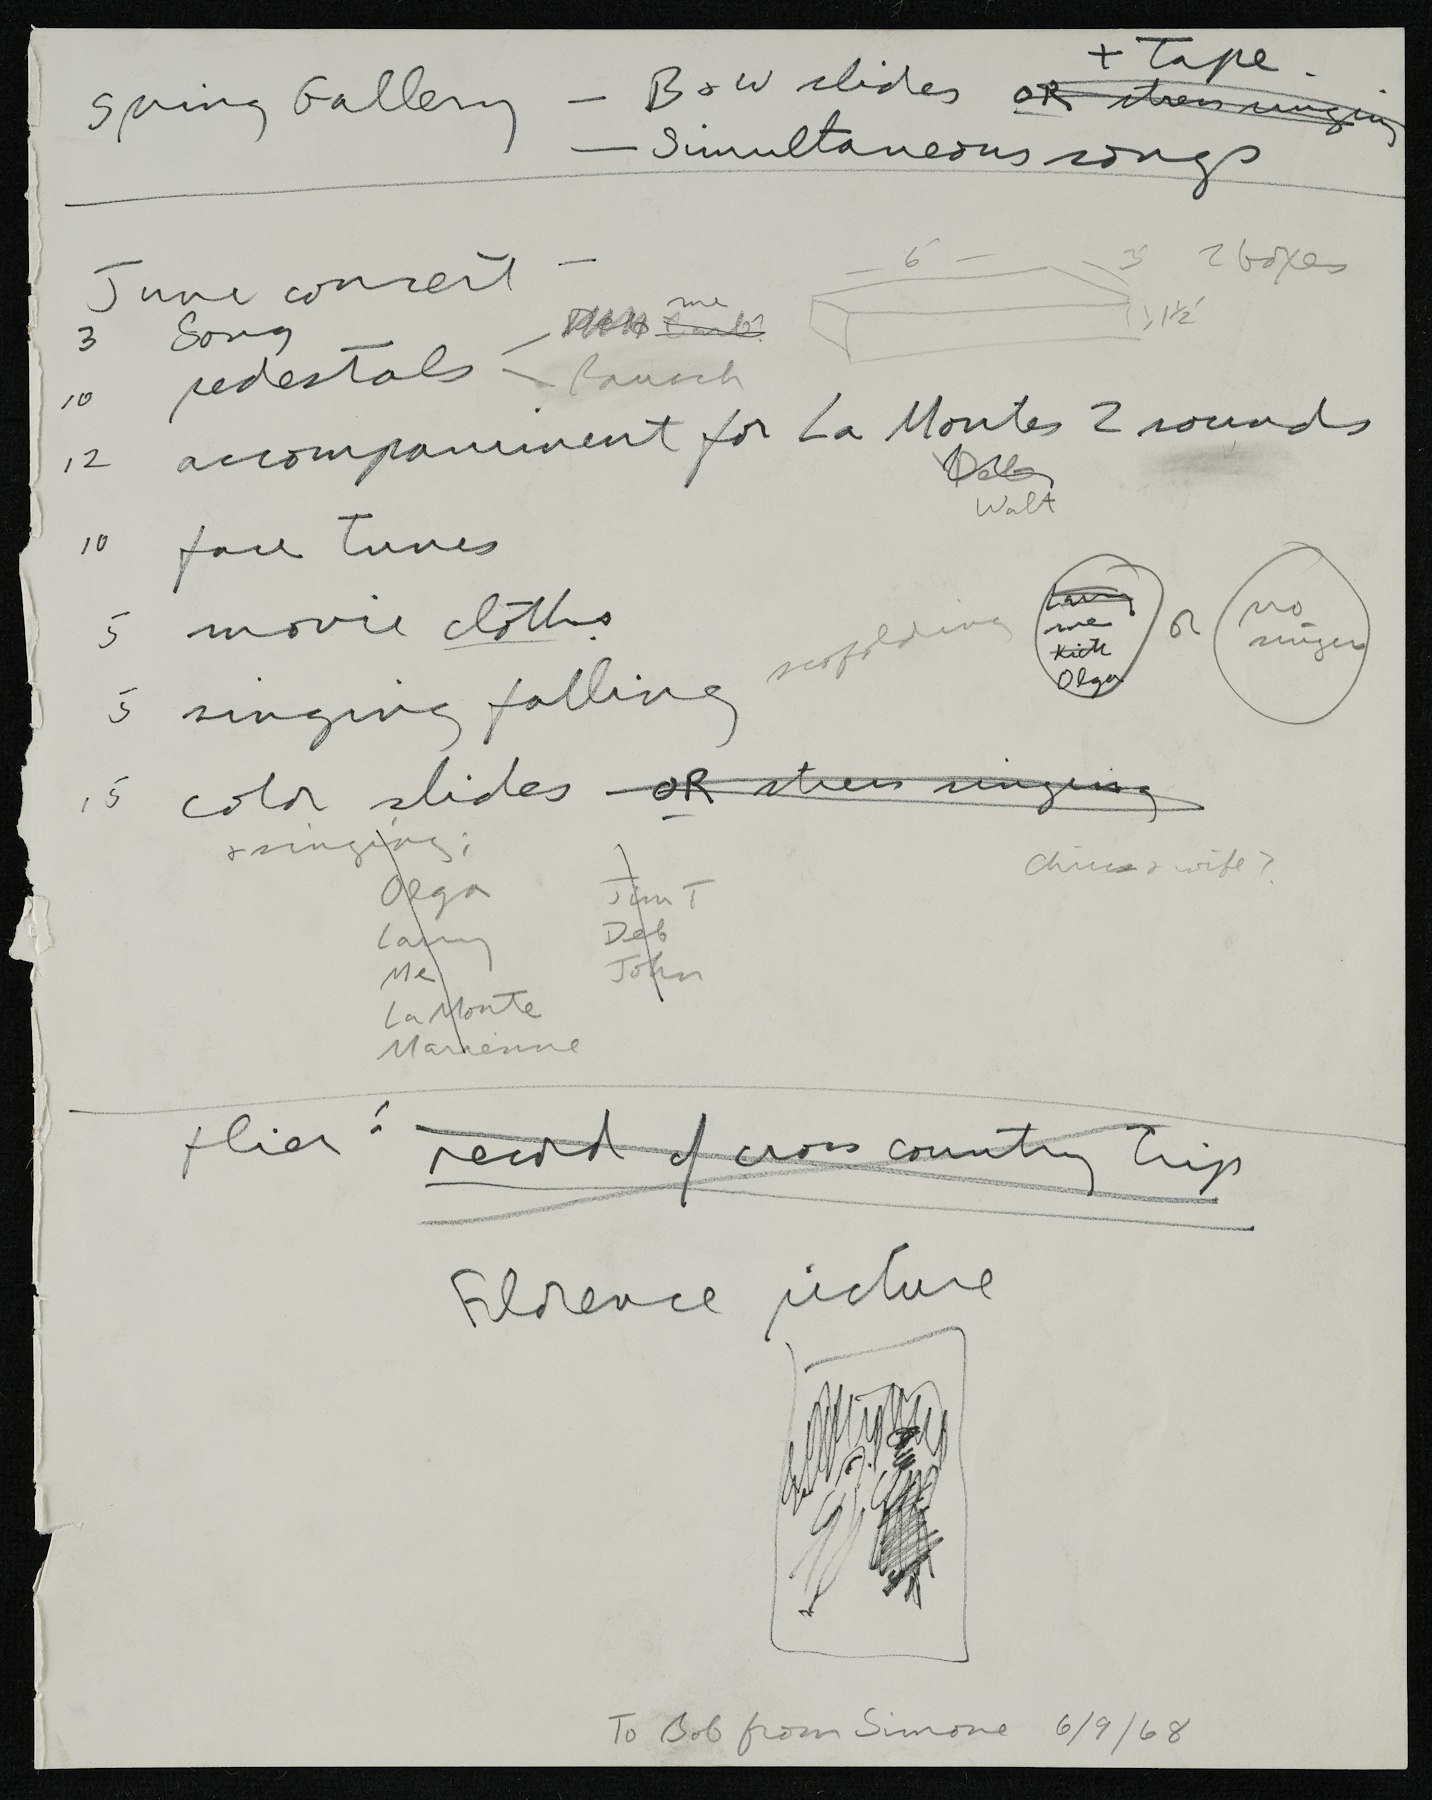 + Tape.
Spring Gallery — B & W slides OR stress singing
— Simultaneous songs
June concert —
6' 3' 2 boxes
1½'
3 Song
me
10 pedestals
Rausch
12 accompaniment for La Montes 2 sounds
Walt
10 face tunes
5 movie cloths
scafolding
Larry
me
Kieth
Olga
or
no
singers
5 singing falling
15 color slides — OR stress singing
& singing:
& wife?
Olga Jim T
Larry Deb
Me John
La Monte
Marienne
flier: record of cross country trip
Florence picture
To Bob from Simone 6/9/68